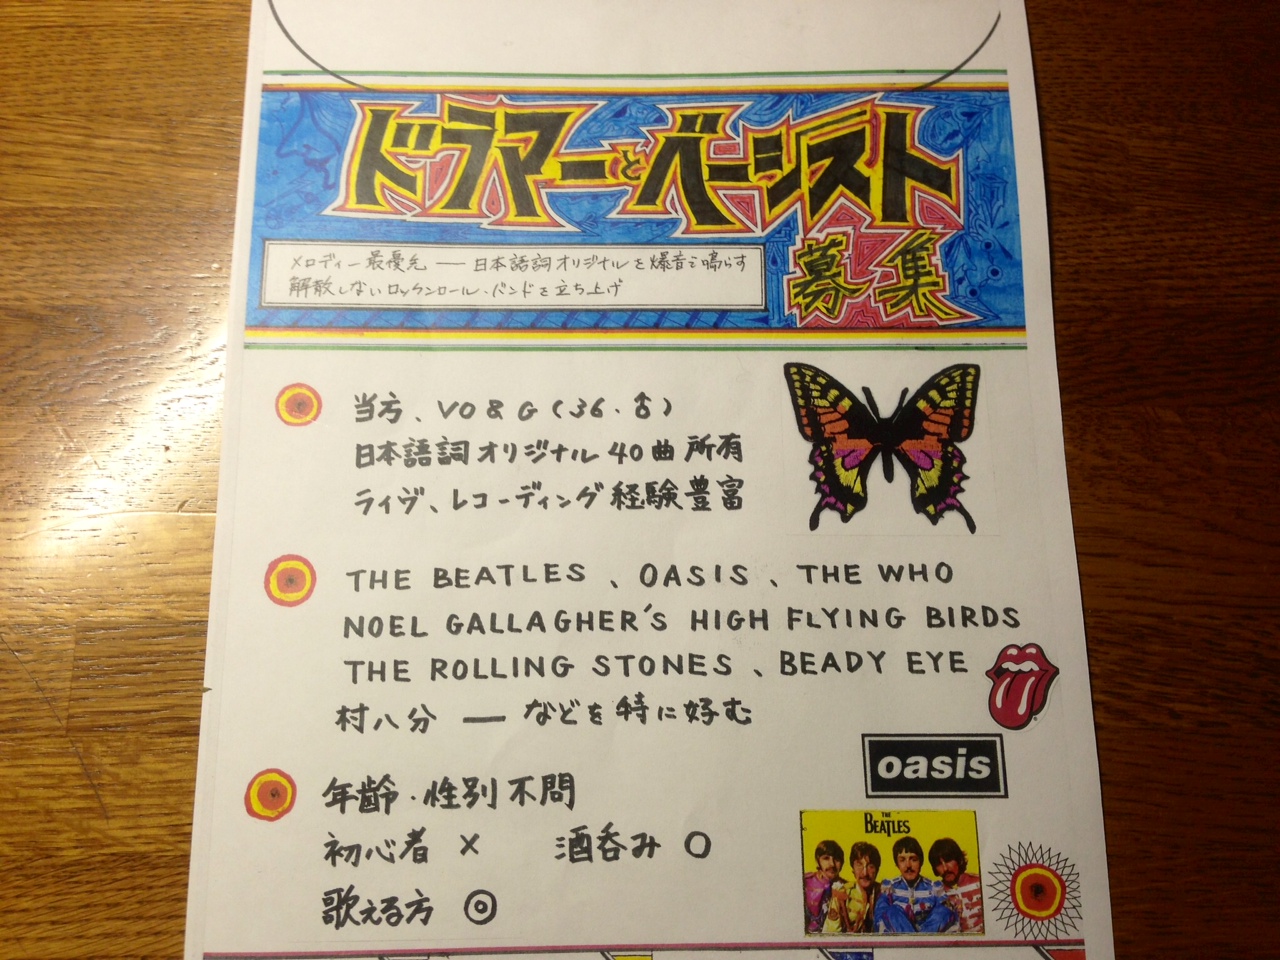 ドラマーとベーシスト
募集
メロディー最優先 ― 日本語詞オリジナルを爆音で鳴らす
解散しないロックンロール・バンドを立ち上げ
当方、VO & G (36・♂)
日本語詞オリジナル40曲所有
ライヴ、レコーディング経験豊富
THE BEATLES、OASIS、THE WHO
NOEL GALLAGHER'S HIGH FLYING BIRDS
THE ROLLING STONES、BEADY EYE
村八分 ― などを特に好む
oasis
年齢・性別不問
初心者 × 酒呑み ○
歌える方 ◎
THE
BEATLES